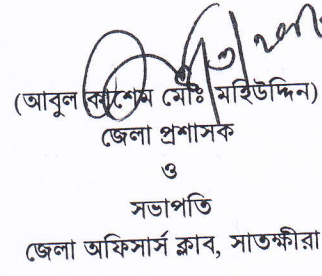 (আবুল কাশেম মোঃ মহিউদ্দিন)
জেলা প্রশাসক
ও
সভাপতি
জেলা অফিসার্স ক্লাব, সাতক্ষীরা